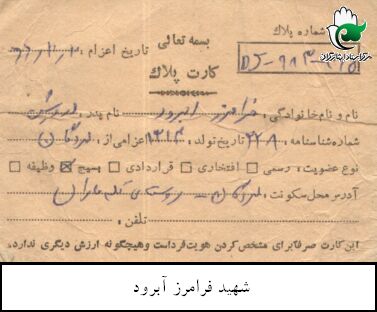 شماره پلاك
مرکز اسناد ایثارگران
بسمه تعالی
تاریخ اعزام:
DJ-983
کارت پلاك
نام و نام خانوادگی: فرامرز آبرود نام پدر:
شماره شناسنامه: 2209 تاریخ تولد: 1343 اعزامی از: لردگان
نوع عضویت: رسمی □ افتخاری □ قراردادی □ بسیج ☑ وظیفه □
آدرس محل سکونت: لردگان - روستای
تلفن:
این کارت صرفا برای مشخص کردن هویت فرد است و هیچگونه ارزش دیگری ندارد.
شهید فرامرز آبرود